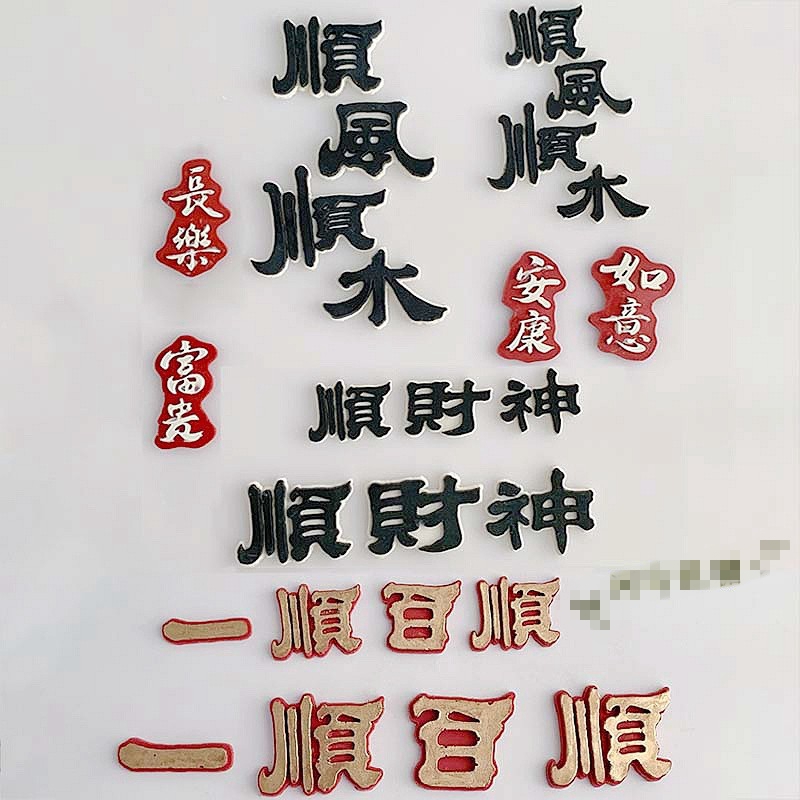 順風順水
順風順水
長樂
安康
如意
富貴
順財神
順財神
一順百順
一順百順